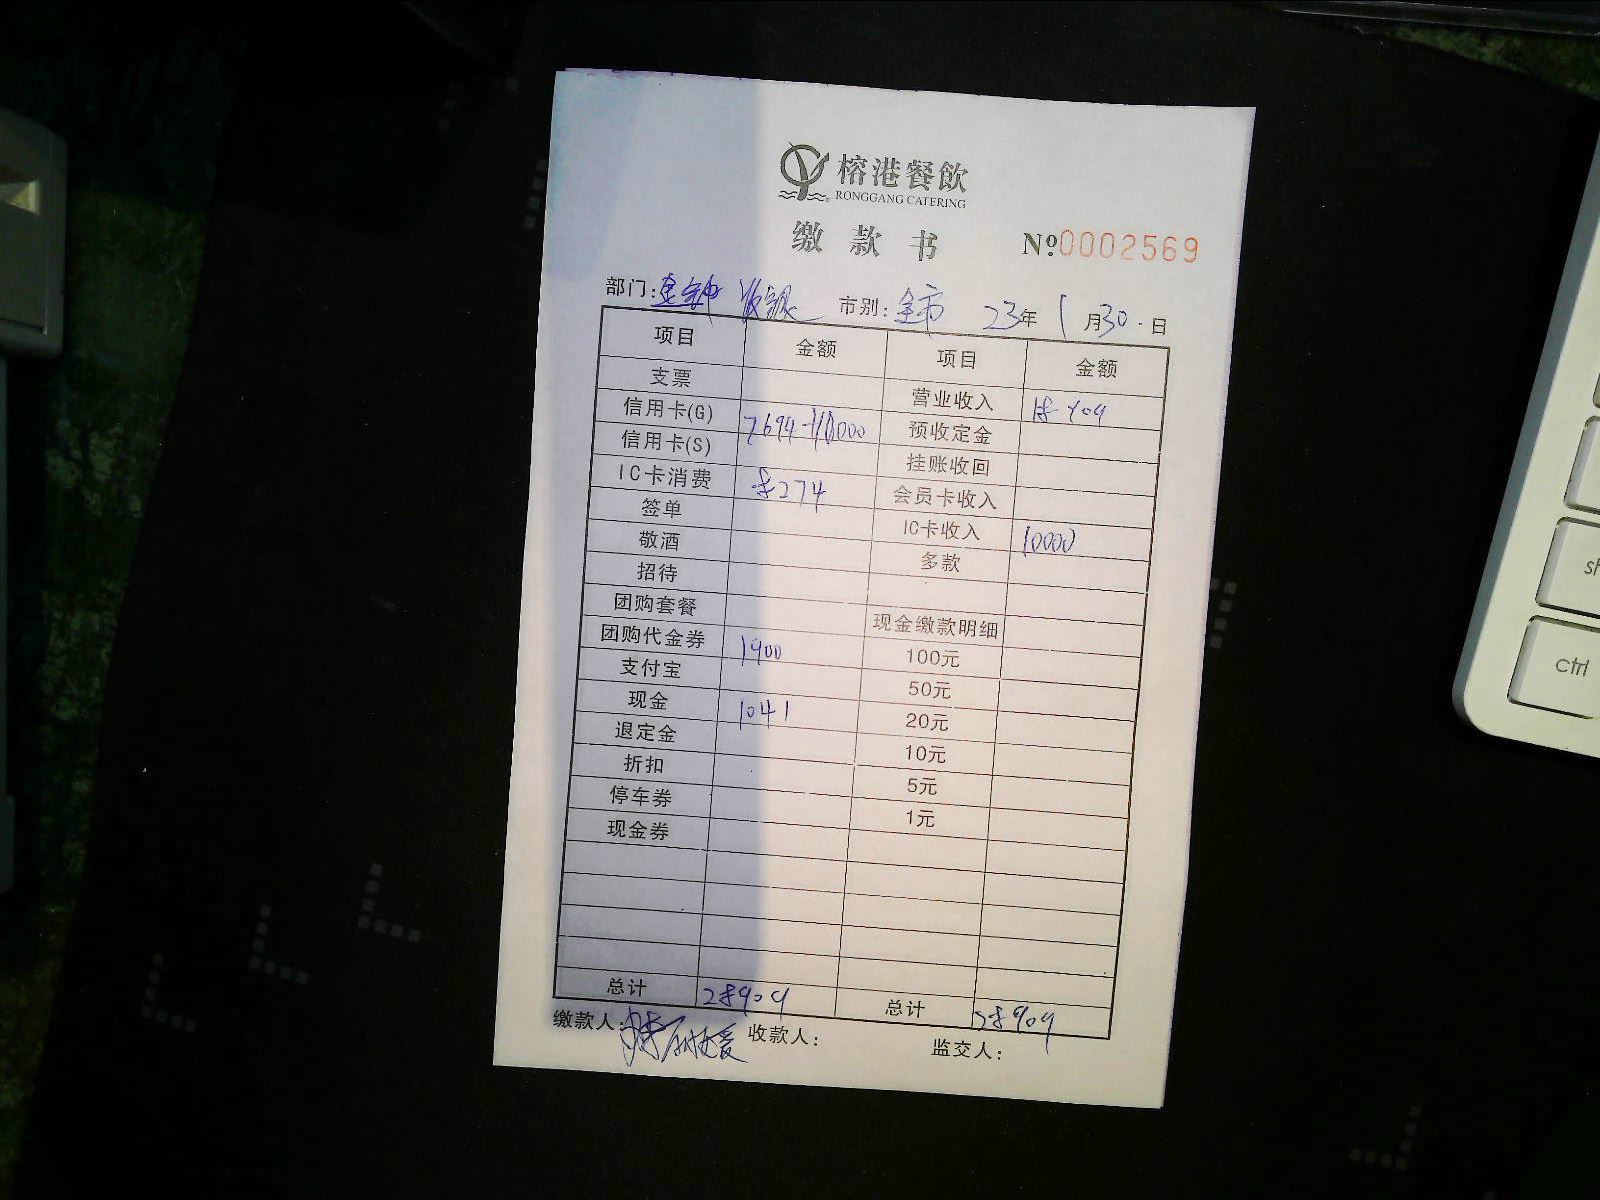 榕港餐飲
RONGGANG CATERING
缴款书 №0002569
部门: 市别:全市 23年1月30日
项目 金额 项目 金额
支票 营业收入 18909
信用卡(G) 7694+10000 预收定金
信用卡(S) 挂账收回
IC卡消费 8274 会员卡收入
签单 IC卡收入 10000
敬酒 多款
招待
团购套餐 现金缴款明细
团购代金券 1900 100元
支付宝 50元
现金 1041 20元
退定金 10元
折扣 5元
停车券 1元
现金券
总计 28909 总计 28909
缴款人: 收款人: 监交人:
sh
ctrl